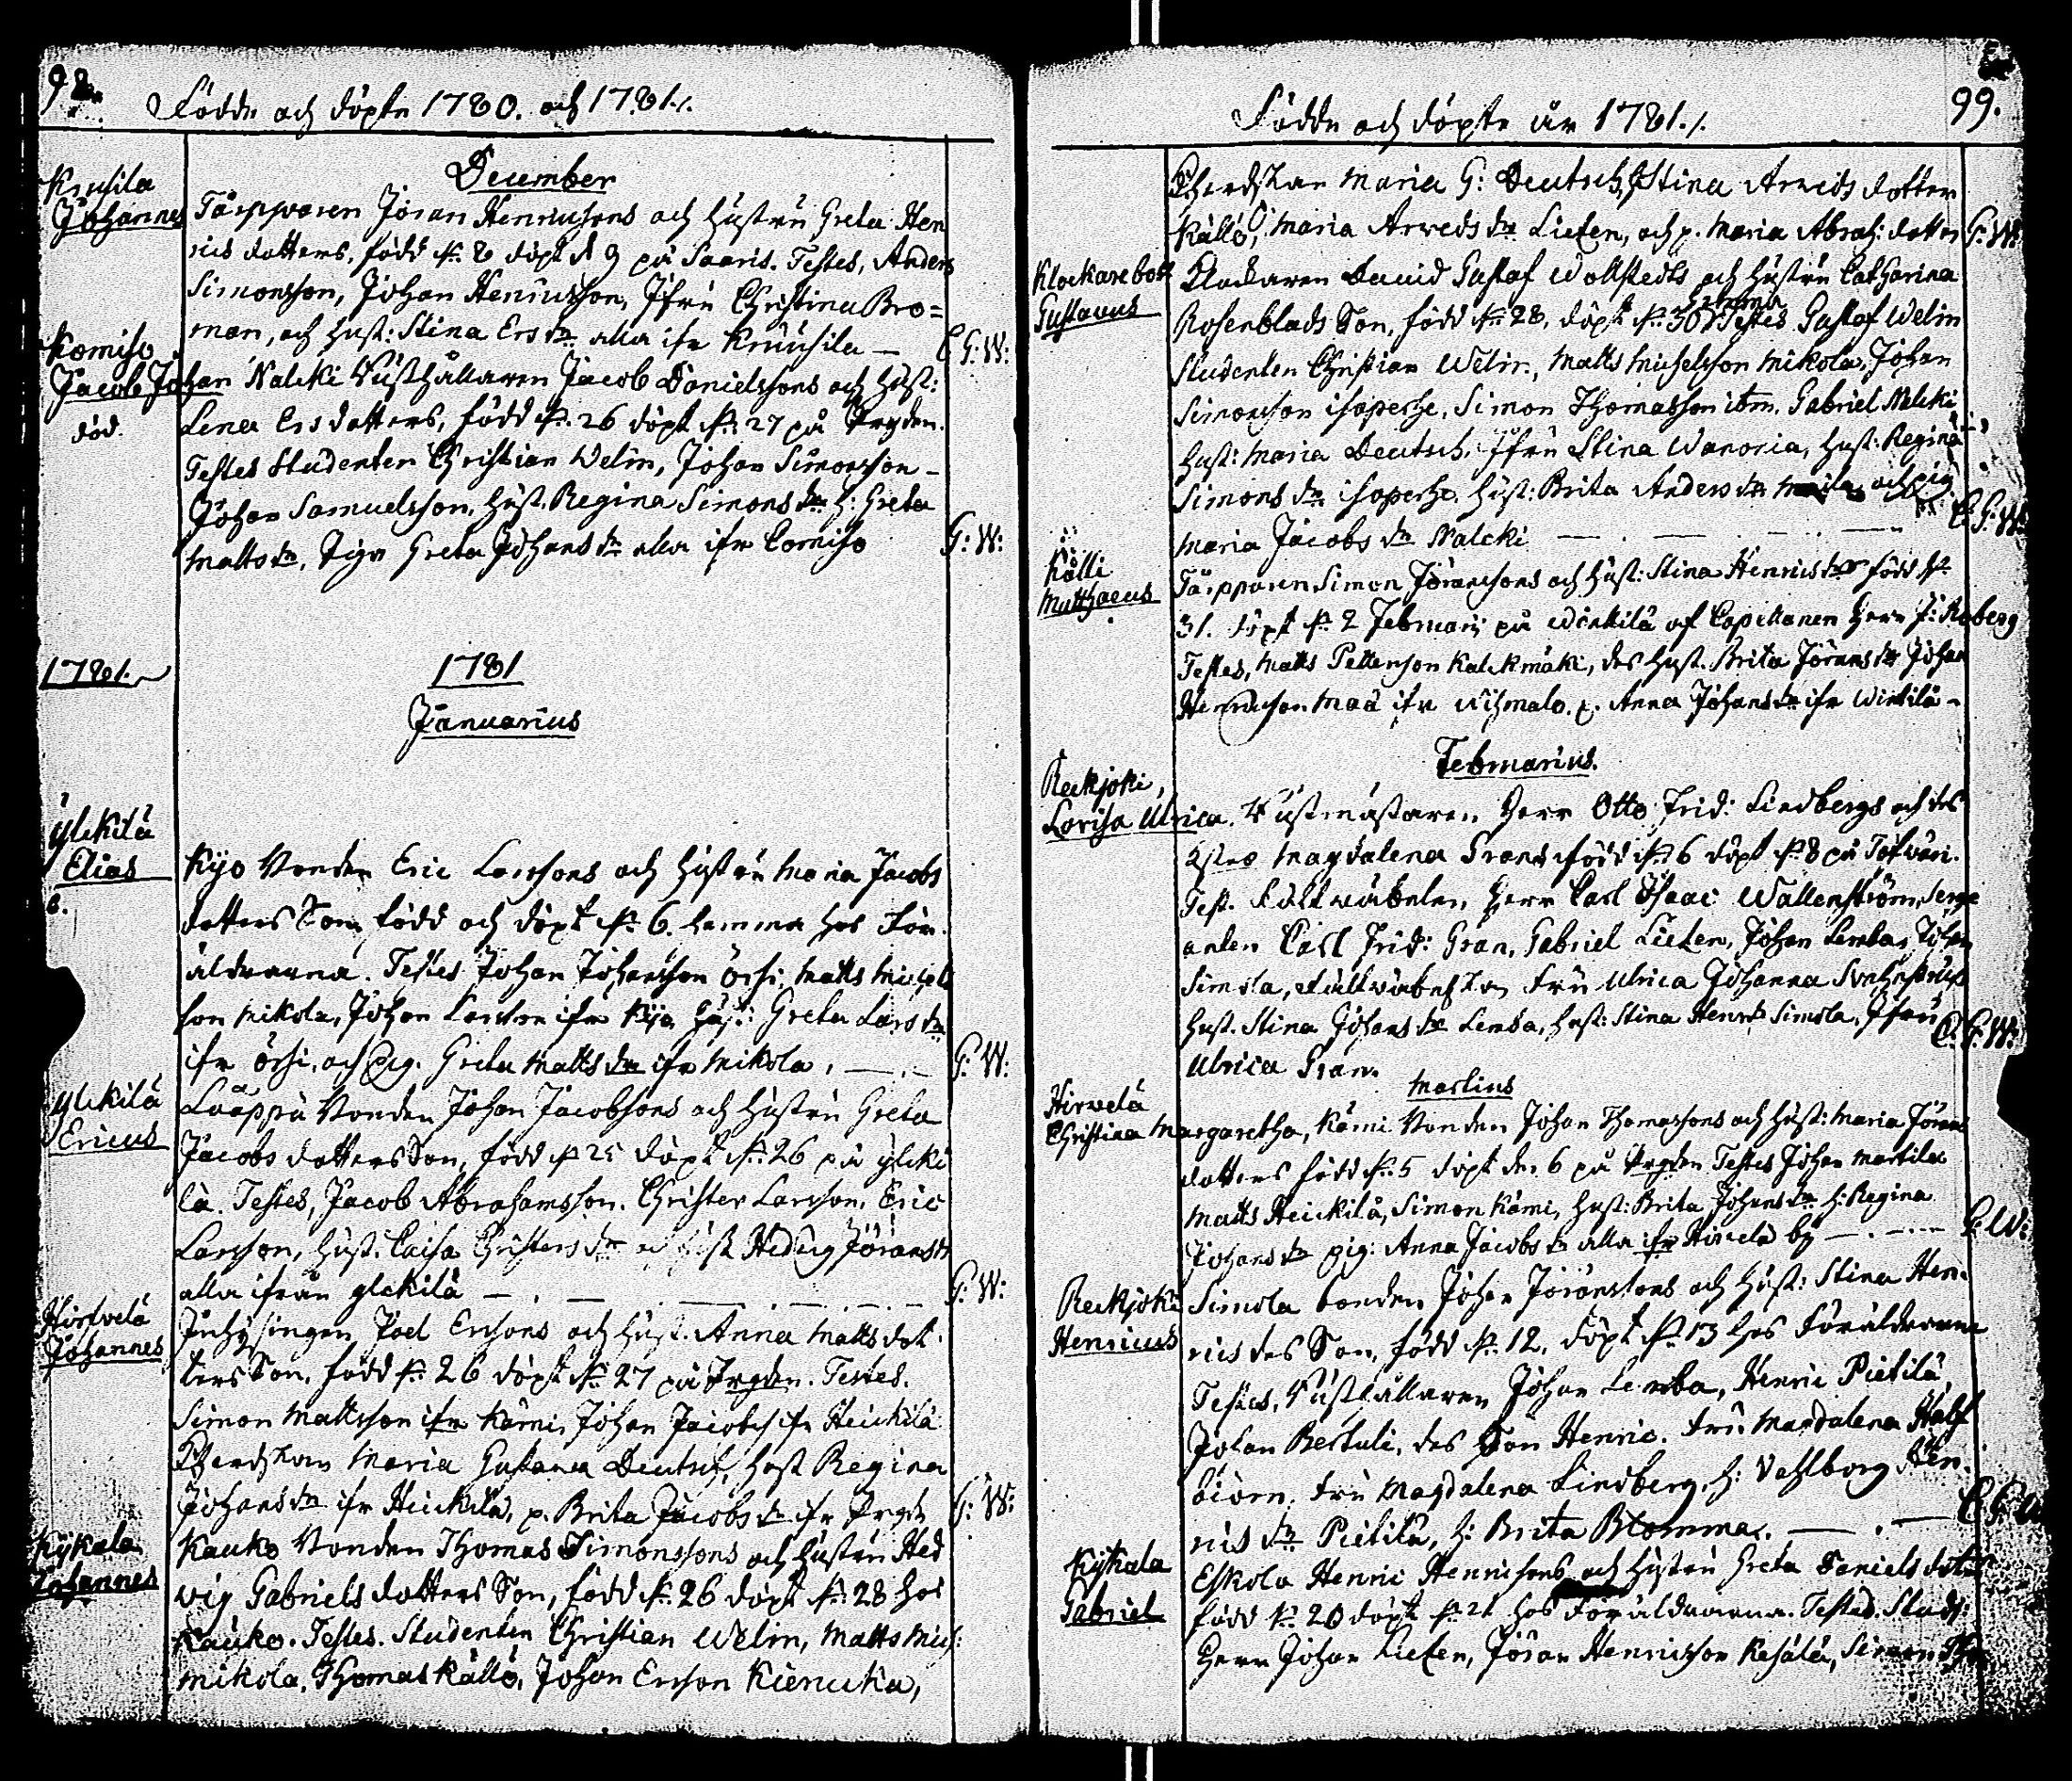 98.
Födde och döpte 1780. och 1781./.
December
Krusila
Johannes
Tårpparen Jöran Henricssons och hustru Greta Hen
rics dotters, född d. 8 döpt d 9 på Saaris. Testes, Anders
Simonsson, Johan Henricsson, Jfru Christina Bro=
man, och hust: Stina Ersdr alla ifr Kruusila —
C G: W:
Komiso
Jacob Johan
död.
Nalcki Rusthållaren Jacob Danielssons och hust:
Lena Ersdotters, född d. 26 döpt d. 27 på Prgden.
Testes Studenten Christian Welin, Johan Simonsson –
Johan Samuelsson, Hust. Regina Simonsdr H: Greta
Mattsdr, Pigr Greta Johansdr alla ifr Comiso
G: W:
1781.
1781
Januarius
Ylckilä
Elias
6.
Kyo Bonden Eric Larssons och hustru Maria Jacobs
dotters Son, född och döpt d. 6. hemma hos För
äldrarna. Testes Johan Johansson Örsi, Matts Michels
son Mikola, Johan Larsson ifr Kyo Hust: Greta Larsdr
ifr Örsi, och Pig. Greta Mattsdr ifr Mikola. —
G: W:
Ylckilä
Ericus
Laappa Bonden Johan Jacobssons och hustru Greta
Jacobs dotters Son, född d 25 döpt d. 26 på Ylcki
lä. Testes, Jacob Abrahamsson. Christer Larsson, Eric
Larsson, hust. Caisa Christersdr och hust Hedvig Jöransdr
alla ifrån Ylckilä — . — . — . —
G: W:
Hirfvelä
Johannes
Inhysingen Joel Ersons och hust. Anna Matts dot
ters Son. född d. 26 döpt d. 27 på Prgden. Testes.
Simon Mattsson ifr Kämi, Johan Jacobss ifr Heickilä
Maria Gustava Deutsch, hust Regina
Johansdr ifr Heickilä, p. Brita Jacobsdr ifr Prgdn
G: W:
Kykala
Johannes
Kauko Bonden Thomas Simonssons och hustru Hed
vig Gabriels dotters Son, född d. 26 döpt d. 28 hos
Kauko. Testes. Studenten Christian Welin, Matts Mich:
Mikola, Thomas Källö, Johan Ersson Kienuka,
99.
Födde och döpte år 1781./.
Maria G: Deutsch, Stina Arveds dotter
Källö, Maria Arvedsdr Lieten, och p. Maria Abrah: dotter
G: W:
Klockarebolt
Gustavus
Klockaren David Gustaf Wollstedts och hustru Catharina
Rosenblads Son, född d. 28. döpt d. 30 hemma Testes Gustaf Welin
Studenten Christian Welin, Matts Michelsson Mikola, Johan
Simonsson isoperhe, Simon Thomasson ibm. Gabriel Nalcki
hust: Maria Deutsch, Jfru Stina Wanoria, hust: Regina
Simonsdr isoperhe, hust: Brita Andersdr och Pig
Maria Jacobsdr Nalcki — . — . — . —
C. G: W:
Källi
Matthaeus
Tårpparen Simon Jöranssons och hust: Stina Henricsdr född d.
31. döpt d. 2 Februarii på Wirkilä af Capellanen Herr J: Roberg
Testes, Matts Pettersson Kalckmäki, des hust. Brita Jöransdr Johan
Henricsson Maa ifr Wihmalo. p. Anna Johansdr ifr Wirkilä –
Februarius.
Reckjoki,
Lovisa Ulrica.
Rustmästaren Herr Otto Frid: Lindbergs och des
Magdalena Grans född d. 6 döpt d. 8 på
Test. Fältwäbelen Herr Carl Isaac Wallenström, Serge
anten Carl Frid: Gran, Gabriel Lieten, Johan Lemba, Johan
Simola, Fru Ulrica Johanna
hust. Stina Johansdr Lemba, hust: Stina Henrdr Simola, Jfru
Ulrica Gran.
C. G: W:
Martius
Hirvelä
Christina Margaretha,
Kämi Bonden Johan Thomassons och hust: Maria Jörans
dotters född d. 5 döpt den 6 på Prgden Testes Johan Martila
Matts Heickilä, Simon Kämi, hust: Brita Johansdr h: Regina
Johansdr pig: Anna Jacobsdr alla ifr Hirvelä by — . — . —
G: W:
Reckjoki
Henricus
Simola bonden Johan Jöranssons och hust: Stina Hen
rics des Son, född d. 12. döpt d. 13 hos Föräldrarne
Testes, Rusthållaren Johan Lemba, Henric Pietilä,
Johan Bertuli, des Son Henric. Fru Magdalena Half
biörn, Fru Magdalena Lindberg, h: Vahlborg Hen
rics dr Pietilä, h: Brita Blomma. — . —
C G: W
Kykala
Gabriel
Eskola Henric Henricsons och hustru Greta Daniels dotter
född d. 20 döpt d. 21 hos Föräldrarna. Testes. Stud:
Herr Johan Lieten, Jöran Henricsson Kesälä, Simon